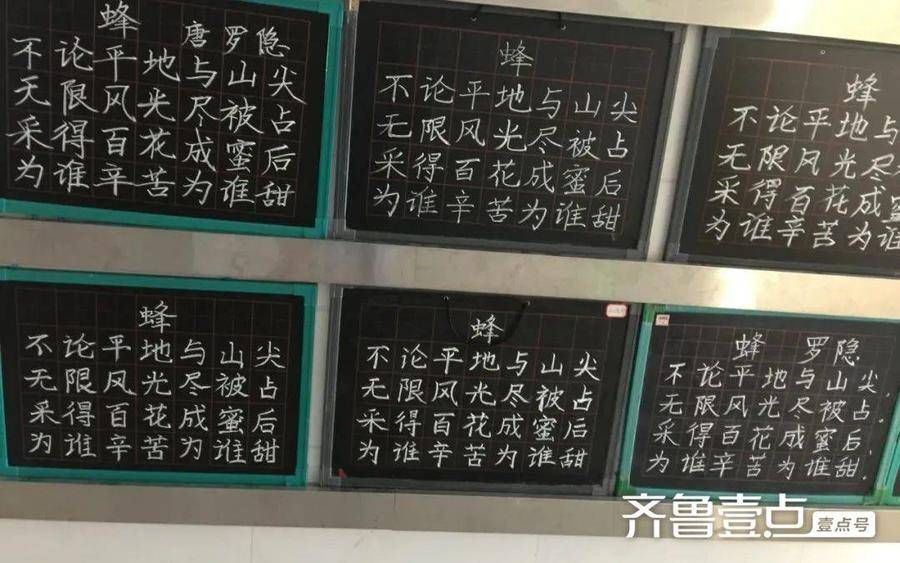 蜂 唐罗隐
不论平地与山尖
无限风光尽被占
采得百花成蜜后
为谁辛苦为谁甜
蜂
不论平地与山尖
无限风光尽被占
采得百花成蜜后
为谁辛苦为谁甜
蜂
不论平地与
无限风光尽
采得百花成蜜
为谁辛苦为谁
蜂
不论平地与山尖
无限风光尽被占
采得百花成蜜后
为谁辛苦为谁甜
蜂
不论平地与山尖
无限风光尽被占
采得百花成蜜后
为谁辛苦为谁甜
蜂 罗隐
不论平地与山尖,
无限风光尽被占.
采得百花成蜜后,
为谁辛苦为谁甜.
齐鲁壹点 壹点号